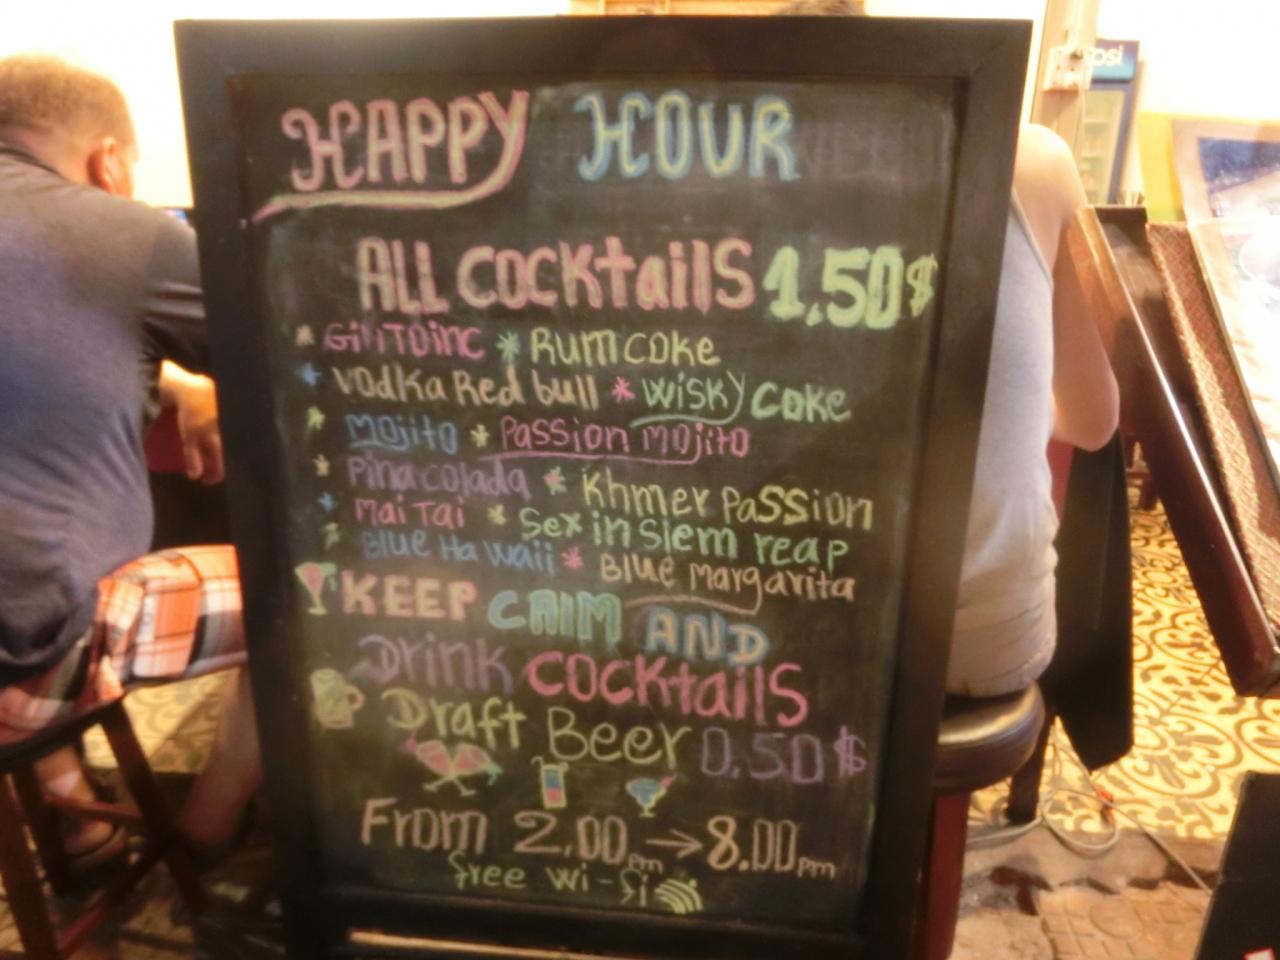 HAPPY HOUR
ALL COCKtailS 1,50$
* GiNTOinc * RUM COKe
* Vodka Red bull * WiSKY COKe
* MOjitO * PaSSion MOjitO
* Pina colada * Khmer PaSSion
* Mai Tai * Sex in Siem reap
* BLUE HaWaii * BLUE Margarita
KEEP CAlM AND
Drink COCKtailS
Draft Beer 0,50$
From 2.00pm → 8.00pm
free wi-fi